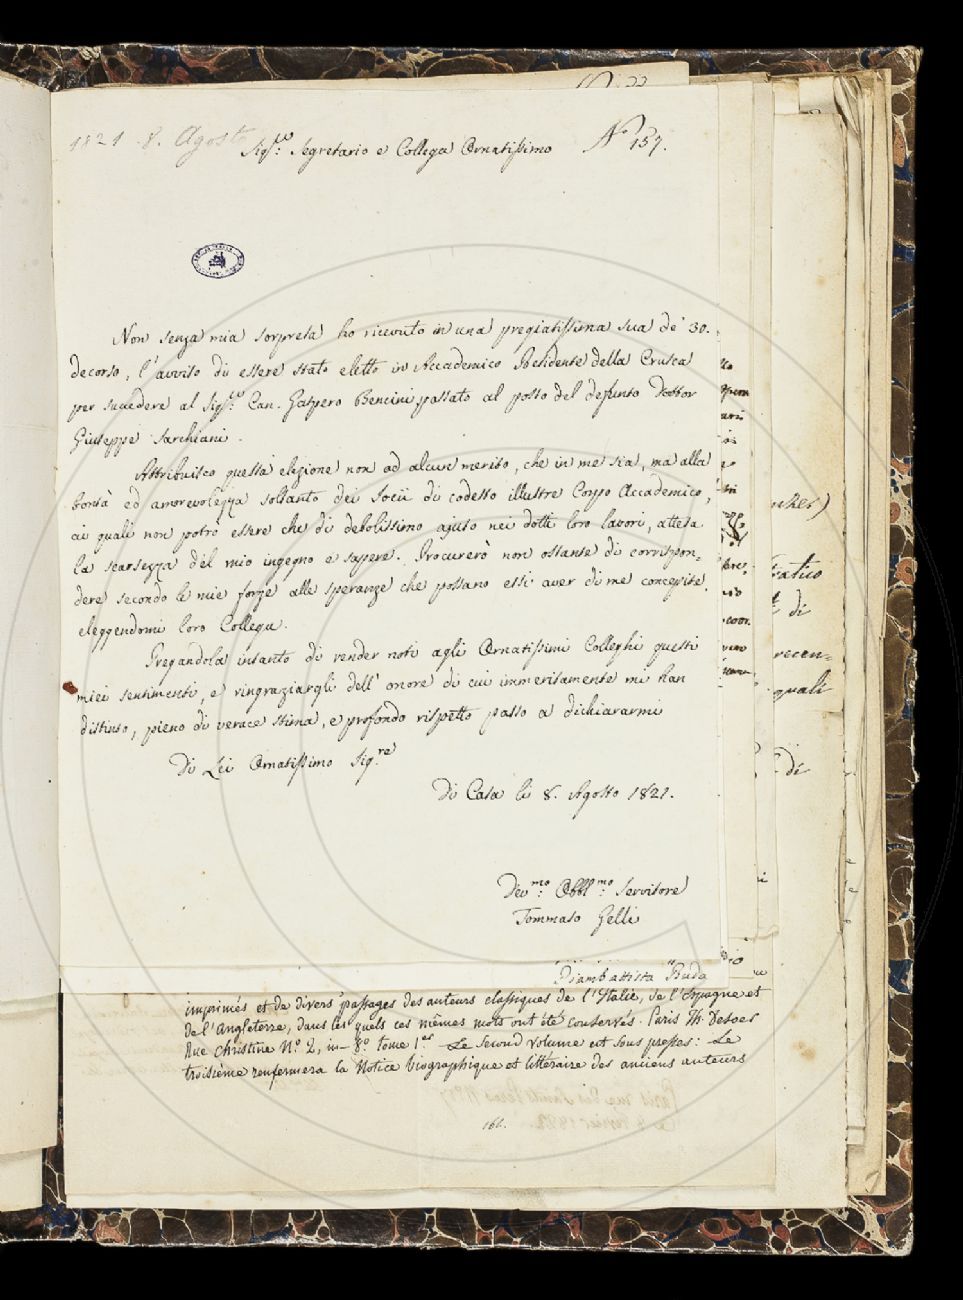 1821. 8. Agosto
Sig.re Segretario e Collega Ornatissimo
N° 137.
Non senza mia sorpresa ho ricevuto in una pregiatissima sua de' 30.
decorso, l'avviso di essere stato eletto in Accademico Residente della Crusca
per succedere al Sig.re Can. Gaspero Bencini passato al posto del defunto Dottor
Giuseppe Sarchiani.
Attribuisco questa elezione non ad alcun merito, che in me sia, ma alla
bontà ed amorevolezza soltanto dei Socii di codesto illustre Corpo Accademico,
ai quali non potrò essere che di debolissimo ajuto nei dotti loro lavori, attesa
la scarsezza del mio ingegno e sapere. Procurerò non ostante di corrispon-
dere secondo le mie forze alle speranze che possano essi aver di me concepite,
eleggendomi loro Collega.
Pregandola intanto di render noti agli Ornatissimi Colleghi questi
miei sentimenti, e ringraziargli dell'onore di cui immeritamente mi han
distinto, pieno di verace stima, e profondo rispetto passo a dichiararmi
Di Lei Ornatissimo Sig.re
Di Casa li 8. Agosto 1821.
Dev.mo Obbl.mo Servitore
Tommaso Gelli
Giambattista
imprimés et de divers passages des auteurs classiques de l'Italie, de l'Espagne et
de l'Angleterre, dans les quels ces mêmes mots ont été conservés. Paris Th. Desoer
Rue Christine N.° 2, in-8.° tome 1.er Le Second volume est sous presses: Le
troisième renfermera la Notice biographique et littéraire des anciens auteurs
166.
tratico
di
recen=
quali
di